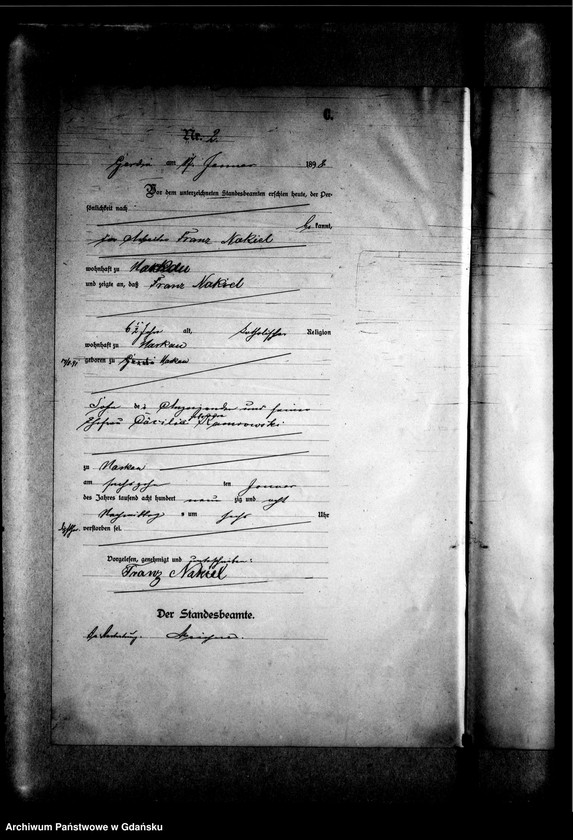 C.
Nr. 2.
am 17. Januar 1898.
Vor dem unterzeichneten Standesbeamten erschien heute, der Per-
sönlichkeit nach
kannt,
der Arbeiter Franz Nakiel
wohnhaft zu
und zeigte an, daß Franz Nakiel
6 ½ Jahr alt, katholischer Religion
wohnhaft zu Warkau
geboren zu Warkau
Sohn des Anzeigenden und seiner
Ehefrau Cäcilia geborene
zu Warkau
am sechszehn ten Januar
des Jahres tausend acht hundert neun zig und acht
Nachmittags um sechs Uhr
verstorben sei.
Vorgelesen, genehmigt und unterschrieben:
Franz Nakiel
Der Standesbeamte.
Archiwum Państwowe w Gdańsku